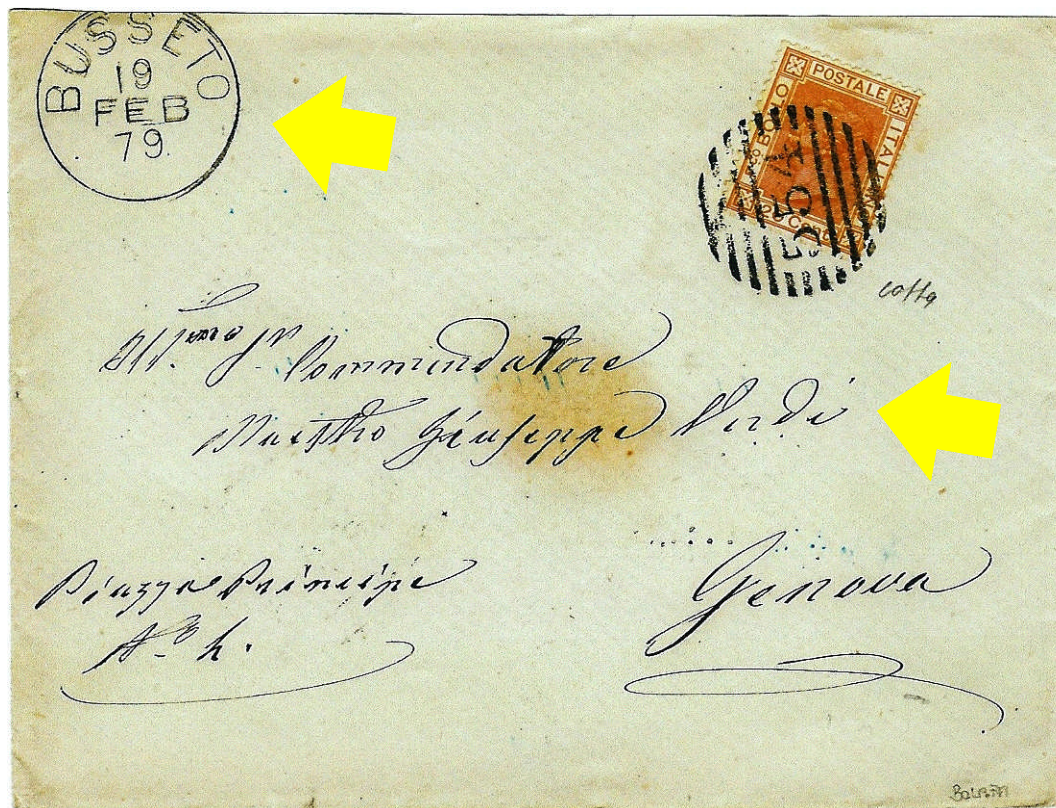 BUSSETO
19
FEB
79.
POSTALE
ITAL
BOLLO
20 CENT
554
Ill.mo Sr. Commendatore
Maestro Giuseppe Verdi
Piazza Principe
No. 4.
Genova